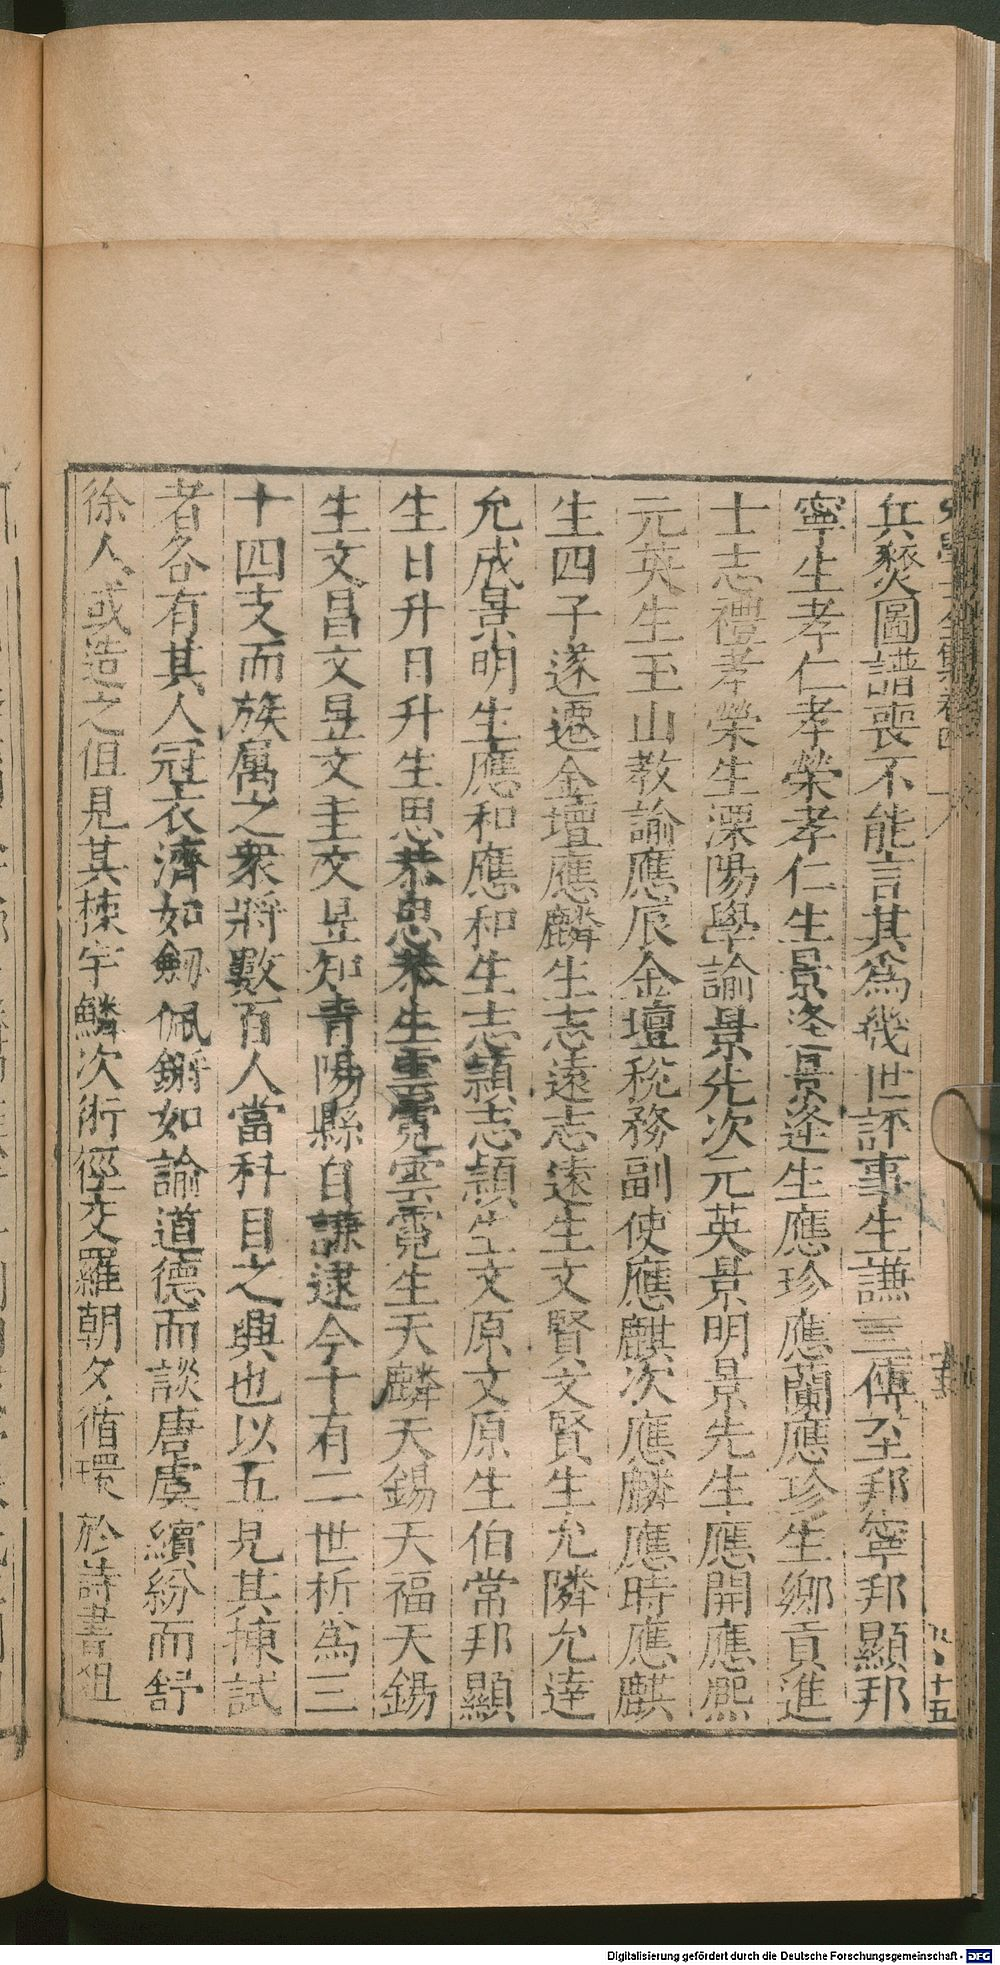 兵燹圖譜喪不能言其為幾世評事生謙三傳至邦寧邦顯邦
寧生孝仁孝榮孝仁生景逄景逄生應珍應蘭應珍生鄉貢進
士志禮孝榮生溧陽學諭景先次元英景明景先生應開應熙
元英生玉山教諭應辰金壇稅務副使應麒次應麟應時應麒
生四子遂遷金壇應麟生志遠志遠生文賢文賢生允隣允達
允成景明生應和應和生志頴志頴生文原文原生伯常邦顯
生日升日升生思恭思恭生雲霓雲霓生天麟天錫天福天錫
生文昌文昱文圭文昱知青陽縣自謙逮今十有二世析為三
十四支而族屬之衆將數百人當科目之興也以五見其揀試
者各有其人冠衣濟如劒佩鏘如論道德而談唐虞繽紛而舒
徐人或造之但見其棟宇鱗次術徑交羅朝夕循環於詩書俎
十五
Digitalisierung gefördert durch die Deutsche Forschungsgemeinschaft - DFG